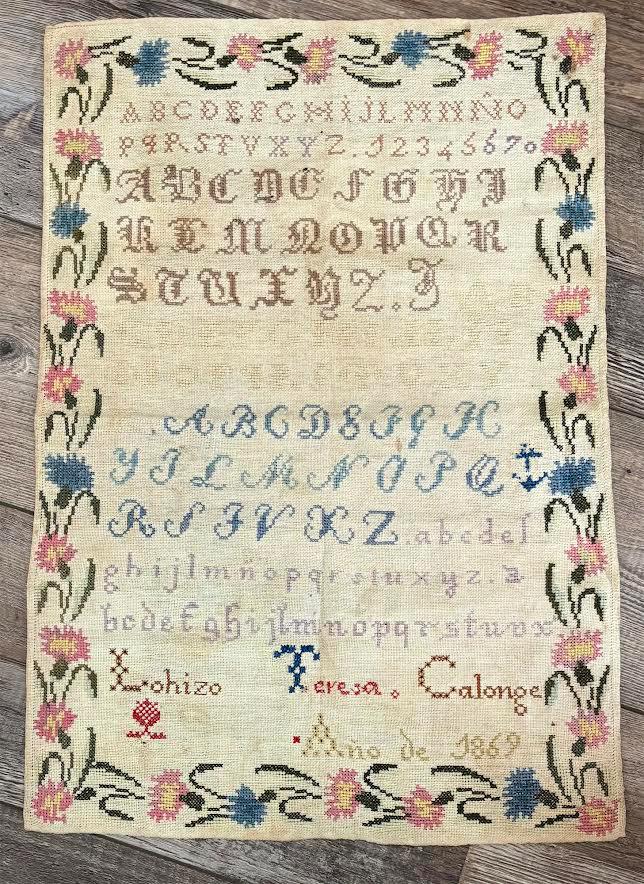 A B C D E F G H I J L M N Ñ O
P Q R S T V X Y Z . 1 2 3 4 5 6 7 0
A B C D E F G H I
K L M N O P Q R
S T U X Y Z . J
. A B C D E F G H
Y J L M N O P Q
R S T V X Z . a b c d e f
g h i j l m ñ o p q r s t u x y z . a
b c d e f g h i j l m n o p q r s t u v x
Lo hizo Teresa . Calonge
Año de 1869